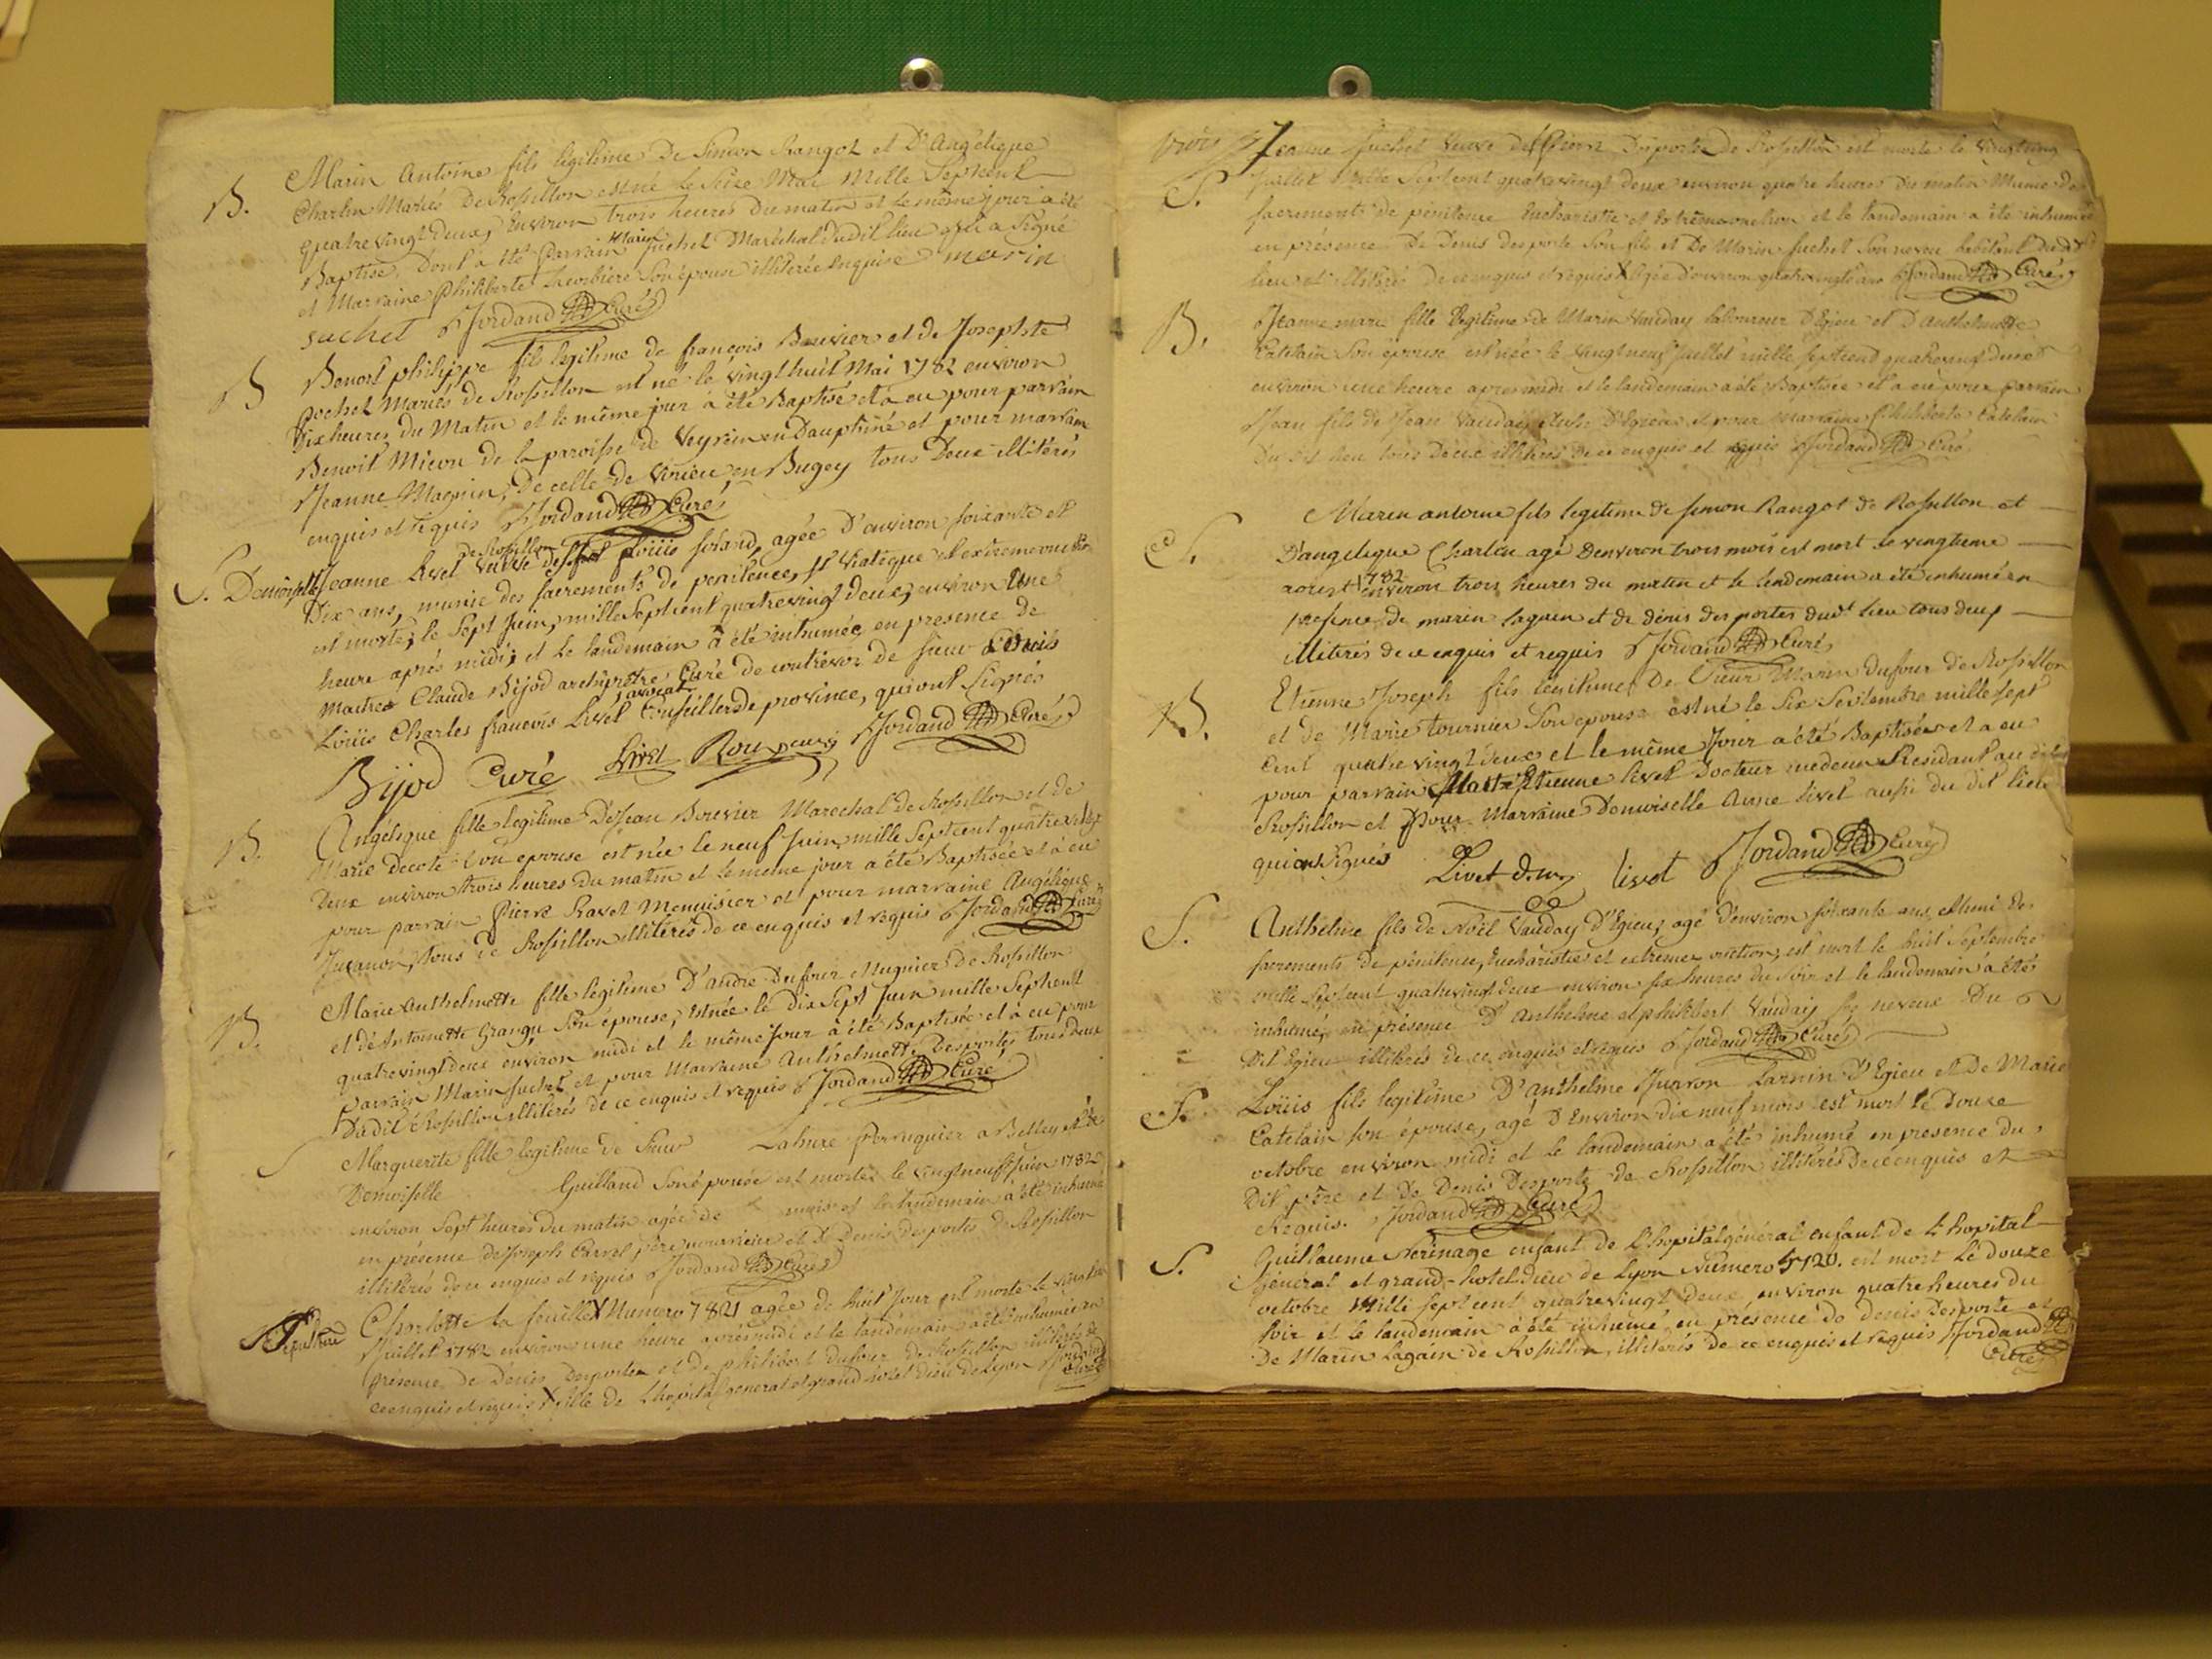 B. Marin Antoine fils légitime De Simon Rangot et D'Angélique
Charlin Mariés De Rossillon est né le seize Mai Mille Septcent
quatrevingt deux, Environ trois heures Du matin et le même jour a été
Baptisé, Dont a été Parrain Marin Suchet Maréchal dudit lieu qui a signé
et Marraine Philiberte son épouse illiterée enquise marin
suchet Jordand Curé
B Benoit philippe fils légitime de françois Bouvier et de Josephte
pochet Mariés de Rossillon est né le vingt huit Mai 1782 environ
Dix heures du Matin et le même jour a été Baptisé et a eu pour parrain
Benoit Micou de la paroisse de Veyrin en Dauphiné et pour marraine
Jeanne Magnin, De celle de Virieu en Bugey tous Deux illitérés
enquis et requis Jordand Curé
de Rossillon
S. Demoiselle Jeanne Livet Veuve de Louis agée D'environ soixante et
Dix ans, munie des sacrements de penitence, st Viatique et extremeonction
est morte, le sept Juin, mille septcent quatrevingt deux, environ Une
heure aprés midi, et le landemain a été inhumée, en presence de
Maitre Claude Bijod archiprêtre Curé de de sieur
avocat
Loüis Charles françois Livet Conseiller de province, qui ont signés
Bijod Curé Livet Jordand Curé
B. Angélique fille legitime De Jean Bouvier Marechal de Rossillon et de
Marie Decoté son epouse est née le neuf Juin mille Septcent quatrevingt
Deux environ trois heures Du matin et le même jour a été Baptisée et a eu
pour parrain Pierre Ravet Menuisier et pour marraine Angélique
tous de Rossillon illitérés de ce enquis et requis Jordand Curé
B. Marie Anthelmette fille légitime D'andré Dufour Mugnier de Rossillon
et de Antoinette son épouse, est née le dix sept Juin mille Septcent
quatrevingt deux environ midi et le même Jour a été Baptisée et a eu pour
parrain Marin Suchet et pour Marraine Anthelmette Desportes tous deux
Dudit Rossillon illitérés de ce enquis et requis Jordand Curé
S Marguerite fille légitime de sieur Perruquier a Belley et de
Demoiselle Guilland son épouse est morte le vingt neuf Juin 1782
environ Sept heures du matin agée de mois et le landemain a été inhumée
en présence de Joseph pere nourricier et de Denis desportes de Rossillon
illitérés de ce enquis et requis Jordand Curé
Sépulture Charlotte la feuille X Numero 7821 agée de huit jour est morte le
Juillet 1782 environ une heure aprés midi et le landemain a été inhumée en
présence de Denis Desportes et de philibert dufour de Rossillon illitérés de
ce enquis et requis X fille de L'hopital general et grand hotel dieu de Lyon Jordand
Curé
S. Jeanne Suchet Veuve de Pierre Desportes de Rossillon est morte le vingt cinq
Juillet Mille Septcent quatrevingt deux environ quatre heures Du matin Munie des
sacrements de pénitence Eucharistie et Extrêmeonction et le landemain a été inhumée
en présence De Denis desporte son fils et De Marin Suchet son neveu habitant dudit
lieu et illitérés de ce enquis et requis X agée d'environ quatrevingts ans Jordand Curé
B. Jeanne marie fille légitime de Marin Vauday laboureur D'Egieu et D'Anthelmette
Catelain son épouse est née le vingt neuf Juillet mille septcent quatrevingt deux
environ une heure apres midi et le landemain a été Baptisée et a eu pour parrain
Jean fils de Jean Vauday D'Egieu et pour marraine philiberte Catelain
Du dit lieu tous Deux illitérés de ce enquis et requis Jordand Curé
S. Marin antoine fils legitime de simon Rangot de Rossillon et
D'angelique Charlin agé denviron trois mois est mort le vingtieme
1782
aoust environ trois heures du matin et le lendemain a été inhumé en
présence de marin lagain et de dénis des portes dud.t lieu tous deux
illitérés de ce enquis et requis Jordand Curé
B. Etienne Joseph fils légitime De Sieur Marin Dufour de Rossillon
et de Marie tournier son epouse est né le Six Septembre mille sept
cent quatre vingt deux et le même Jour a été Baptisé et a eu
pour parrain Maitre Etienne livet Docteur medecin Residant au dit
Rossillon et pour Marraine Demoiselle Anne livet aussi du dit lieu
qui ont signés Livet livet Jordand Curé
S. Anthelme fils de Noël Vauday D'Egieu, agé D'environ soixante ans Muni des
sacrements de pénitence, Eucharistie et extreme onction, est mort le huit Septembre
mille septcent quatrevingt deux environ six heures du soir et le landemain a été
inhumé, en présence D'Anthelme et philibert Vauday ses neveux Du
Dit Egieu illitérés de ce enquis et requis Jordand Curé
S. Loüis fils legitime D'Anthelme D'Egieu et De Marie
Catelain son épouse, agé D'Environ dix neuf mois est mort le Douze
octobre environ midi et le landemain a été inhumé en presence du
Dit pere et de Denis Desporte de Rossillon illitérés de ce enquis et
Requis. Jordand Curé
S. Guillaume enfant de L'hopital général enfant de L'hopital
général et grand-hotel dieu de Lyon Numero 5120. est mort le douze
octobre Mille sept cent quatrevingt deux environ quatre heures du
soir et le landemain a été inhumé en présence de denis Desporte et
De Marin Lagain de Rossillon, illitérés de ce enquis et requis Jordand
Curé